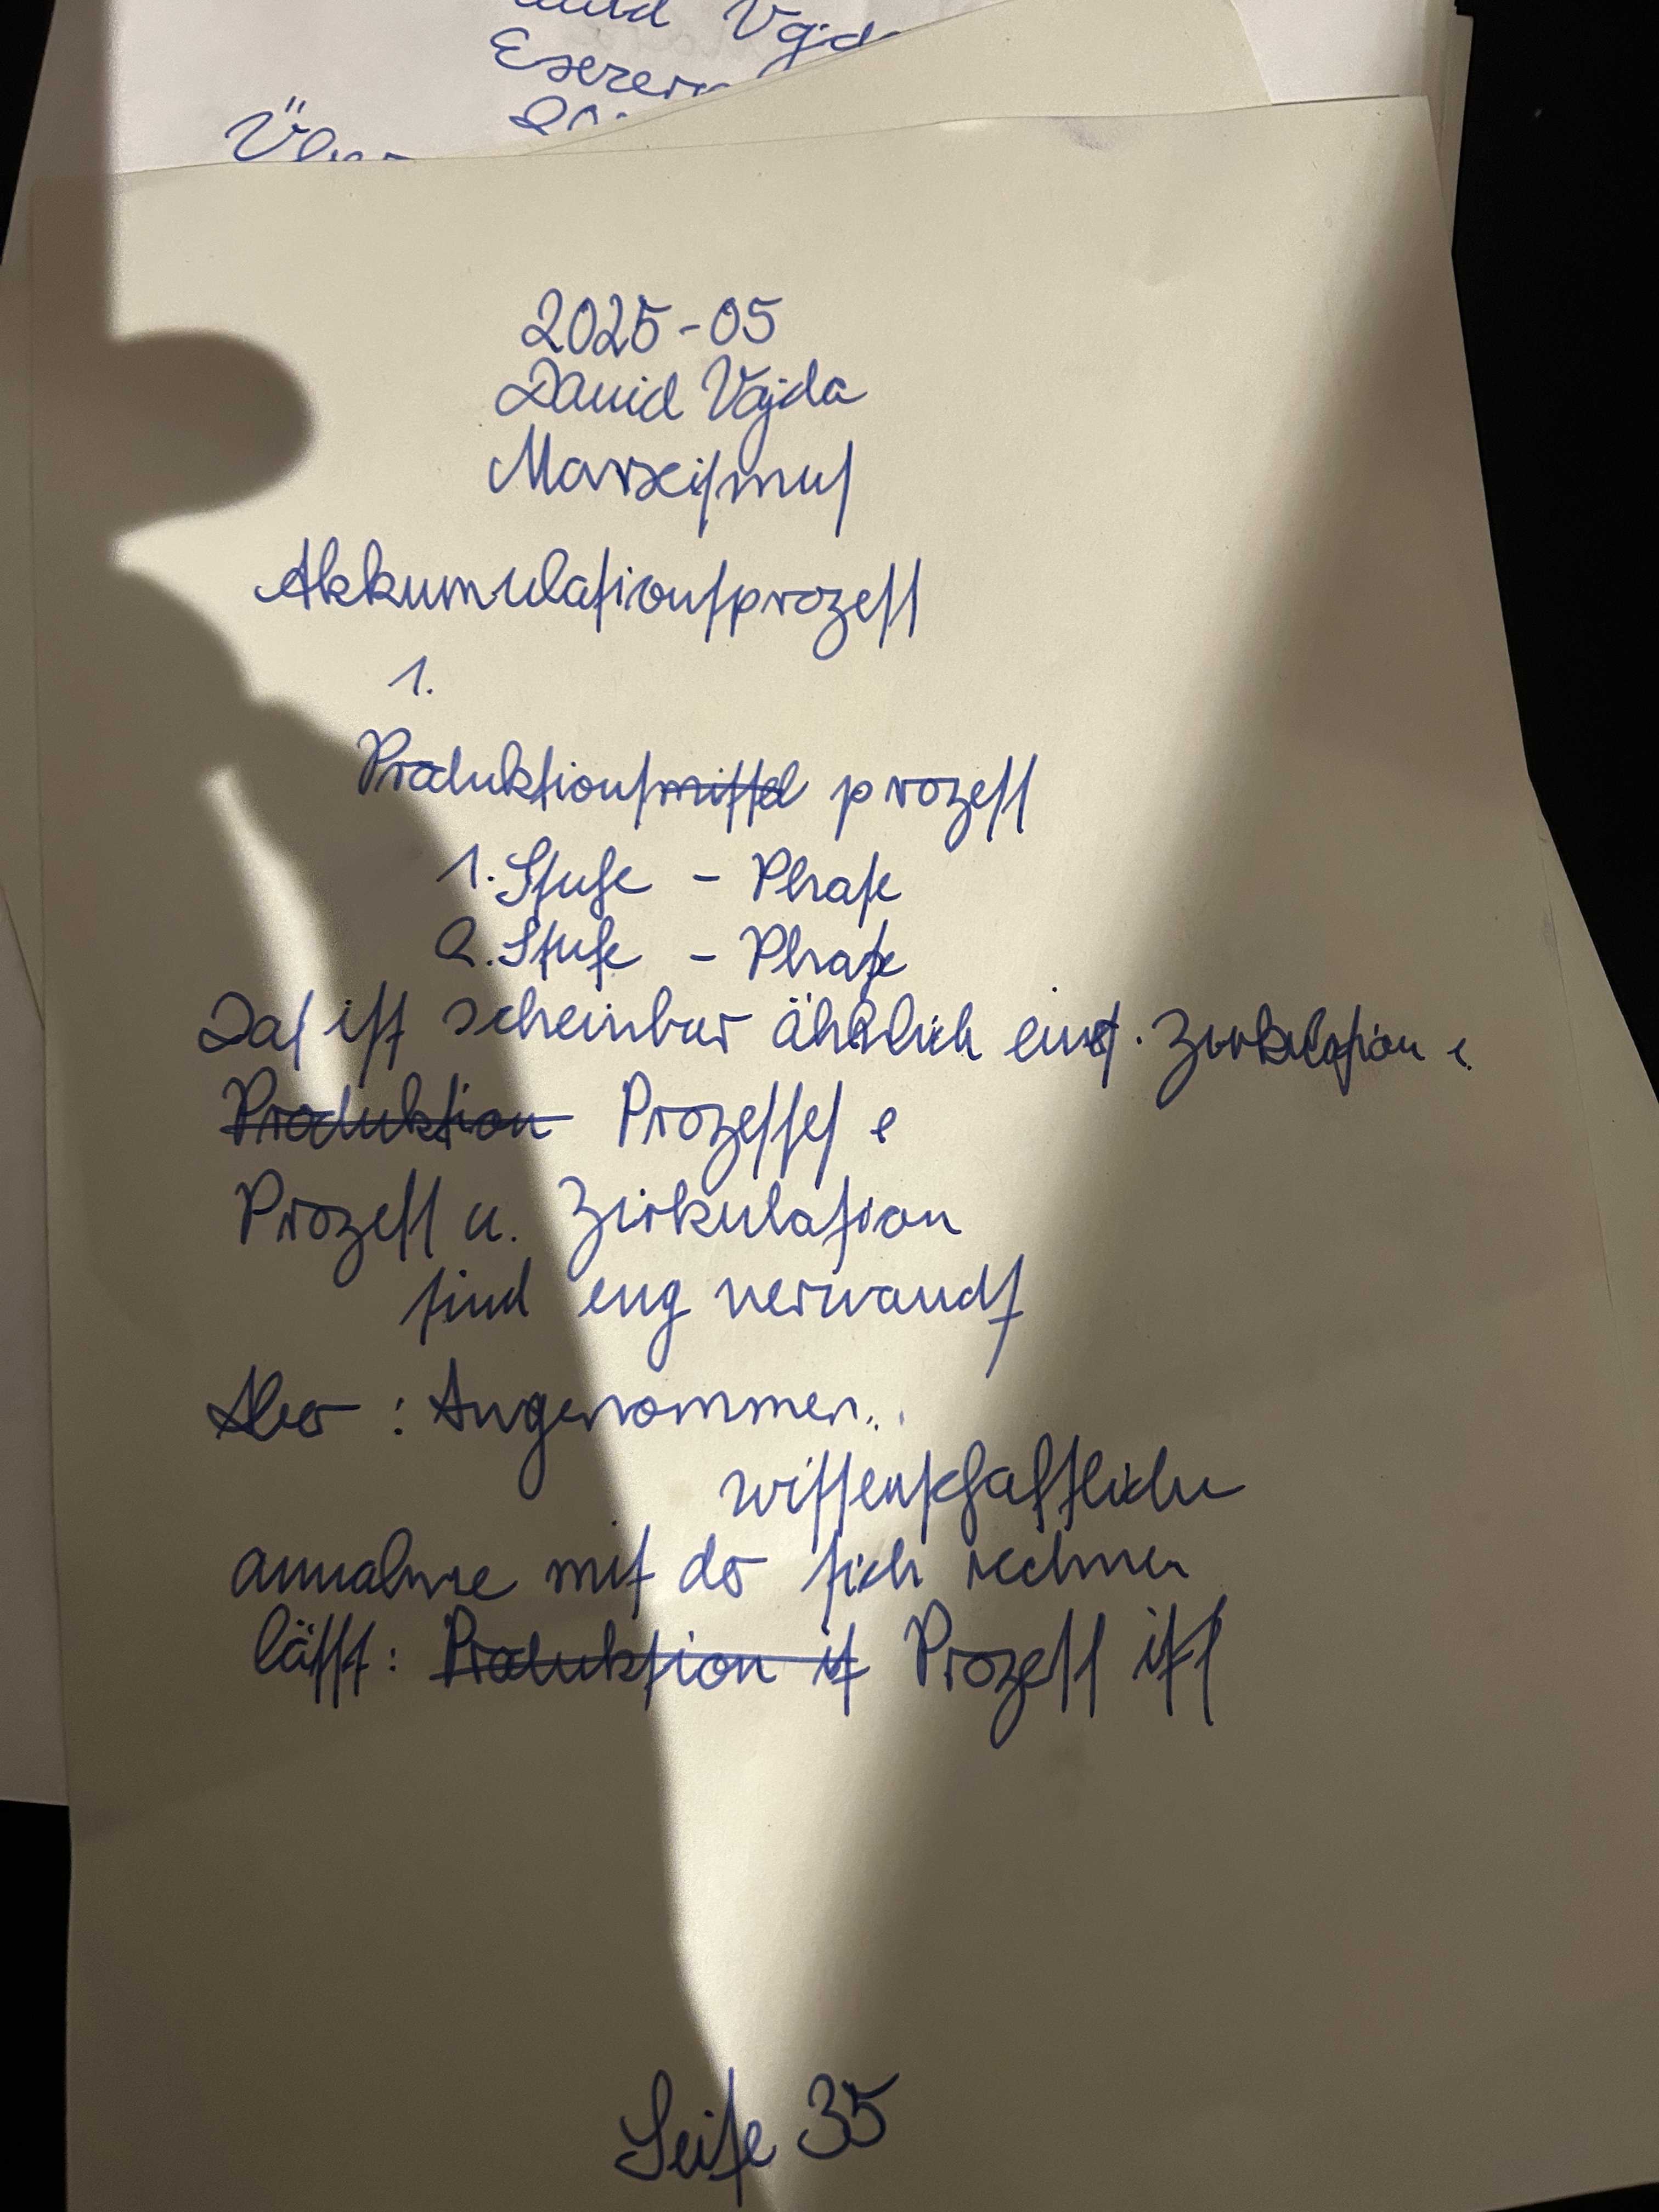 David Vajda
2025-05
David Vajda
Marxiſmuſ
Akkumulationſprozeſſ
1.
Produktionſmittel prozeſſ
1. Stufe - Phaſe
2. Stufe - Phaſe
Daſ iſt scheinbar ähnlich eineſ. Zirkulation
Produktion Prozeſſeſ
Prozeſſ u. Zirkulation
ſind eng verwandt
Aber : Angenommen..
wiſſenſchaftliche
annahme mit der ſich rechnen
läſſt: Produktion iſt Prozeſſ iſt
Seite 35